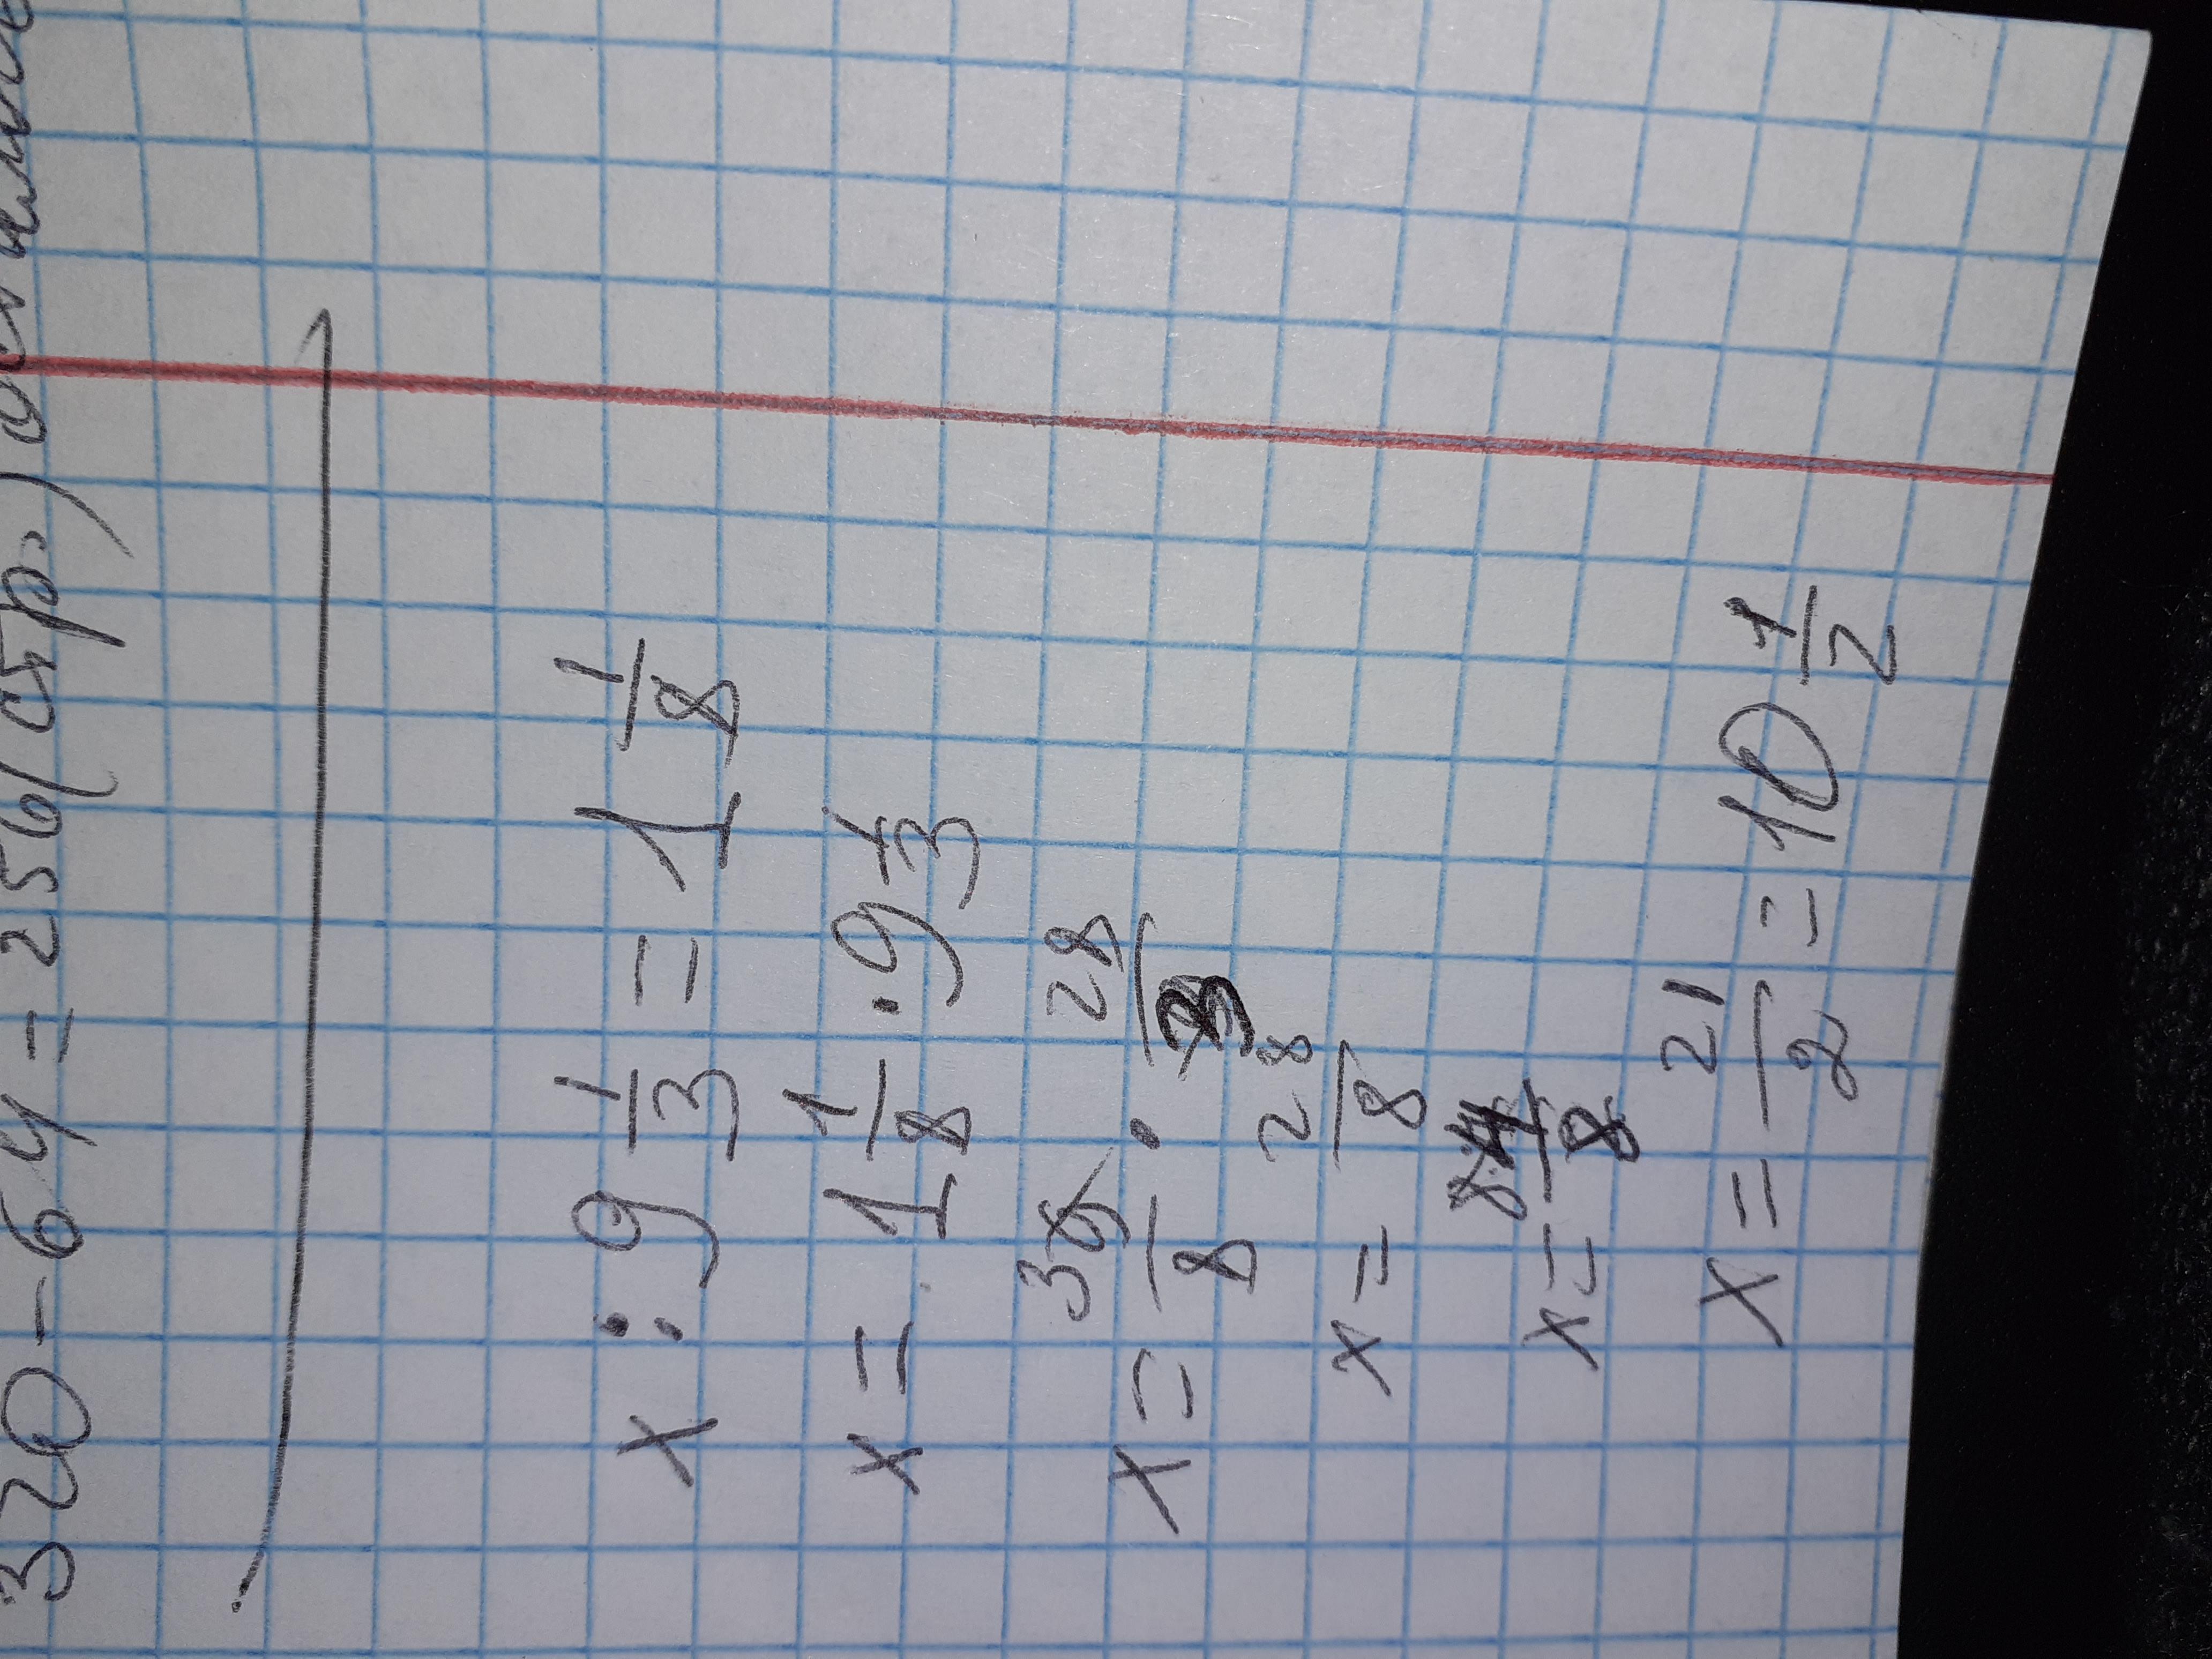 320 - 64 = 256 (стр.)
x : 9 1/3 = 1 1/8
x = 1 1/8 · 9 1/3
x = 3 9/8 · 28/3
x = 28/8
x = 84/8
x = 21/2 = 10 1/2